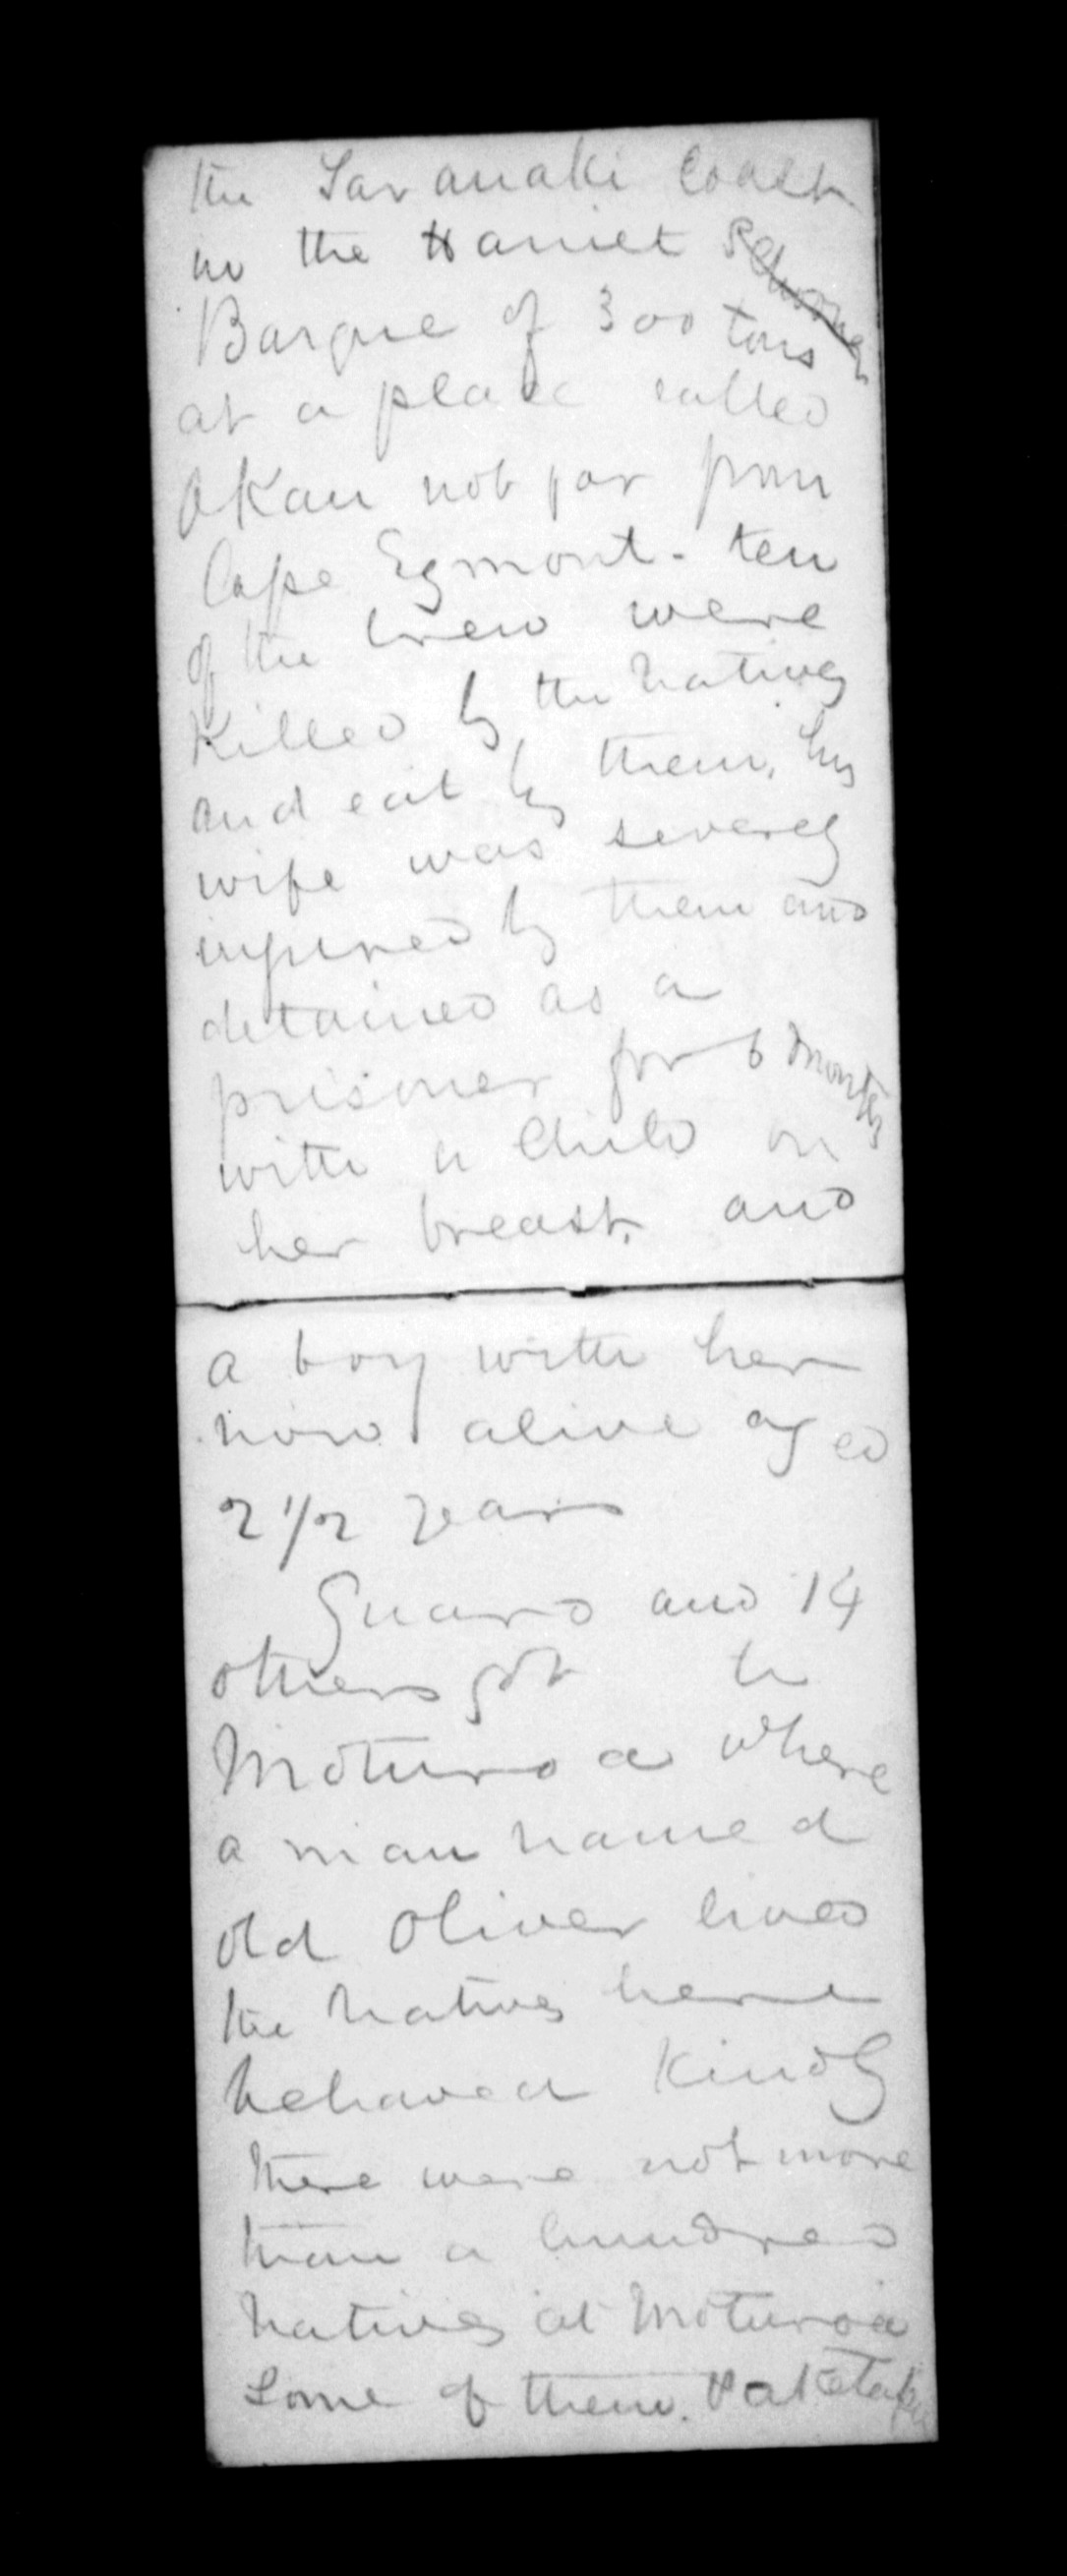 the Taranaki Coast
in the Harriet Schooner
Barque of 300 tons
at a place called
Okau not far from
Cape Egmont - ten
of the Crew were
Killed by the Natives
and eat by them, his
wife was severely
injured by them and
detained as a
prisoner for 6 months
with a Child on
her breast, and
a boy with her
now alive aged
2 1/2 years
Guard and 14
others got to
Moturoa where
a man named
old Oliver lived
the Natives here
behaved Kindly
there were not more
than a hundred
Natives at Moturoa
Some of them.